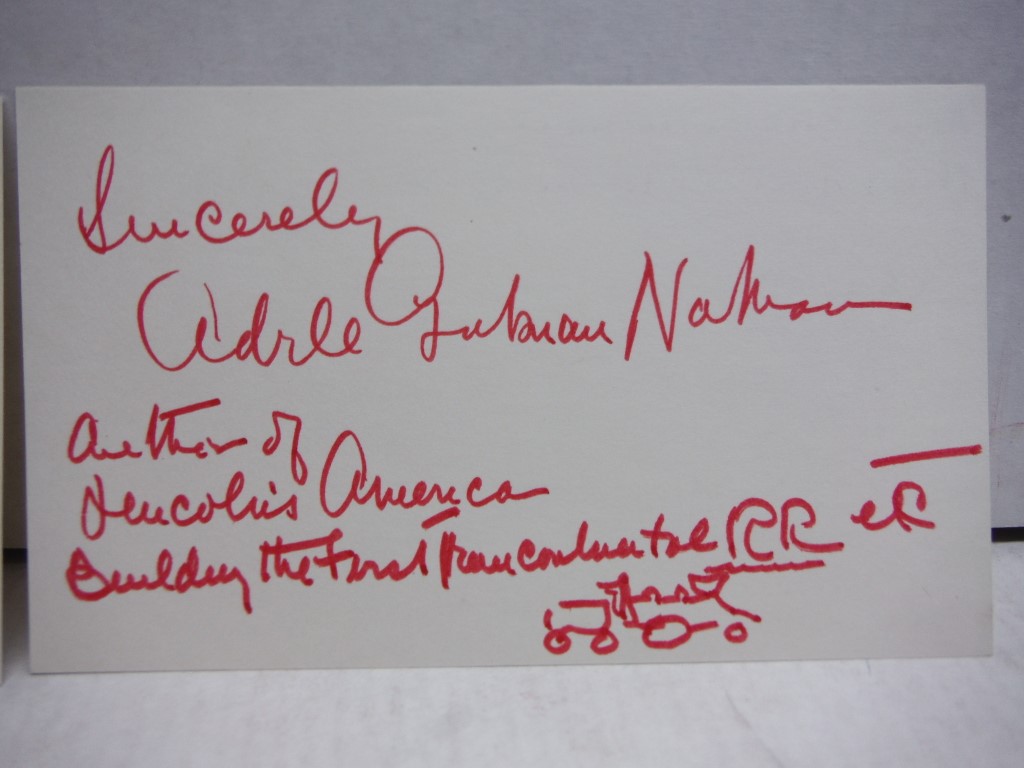 Sincerely
Adele Gutman Nathan
Author of
Lincoln's America
Building the First Transcontinental RR etc